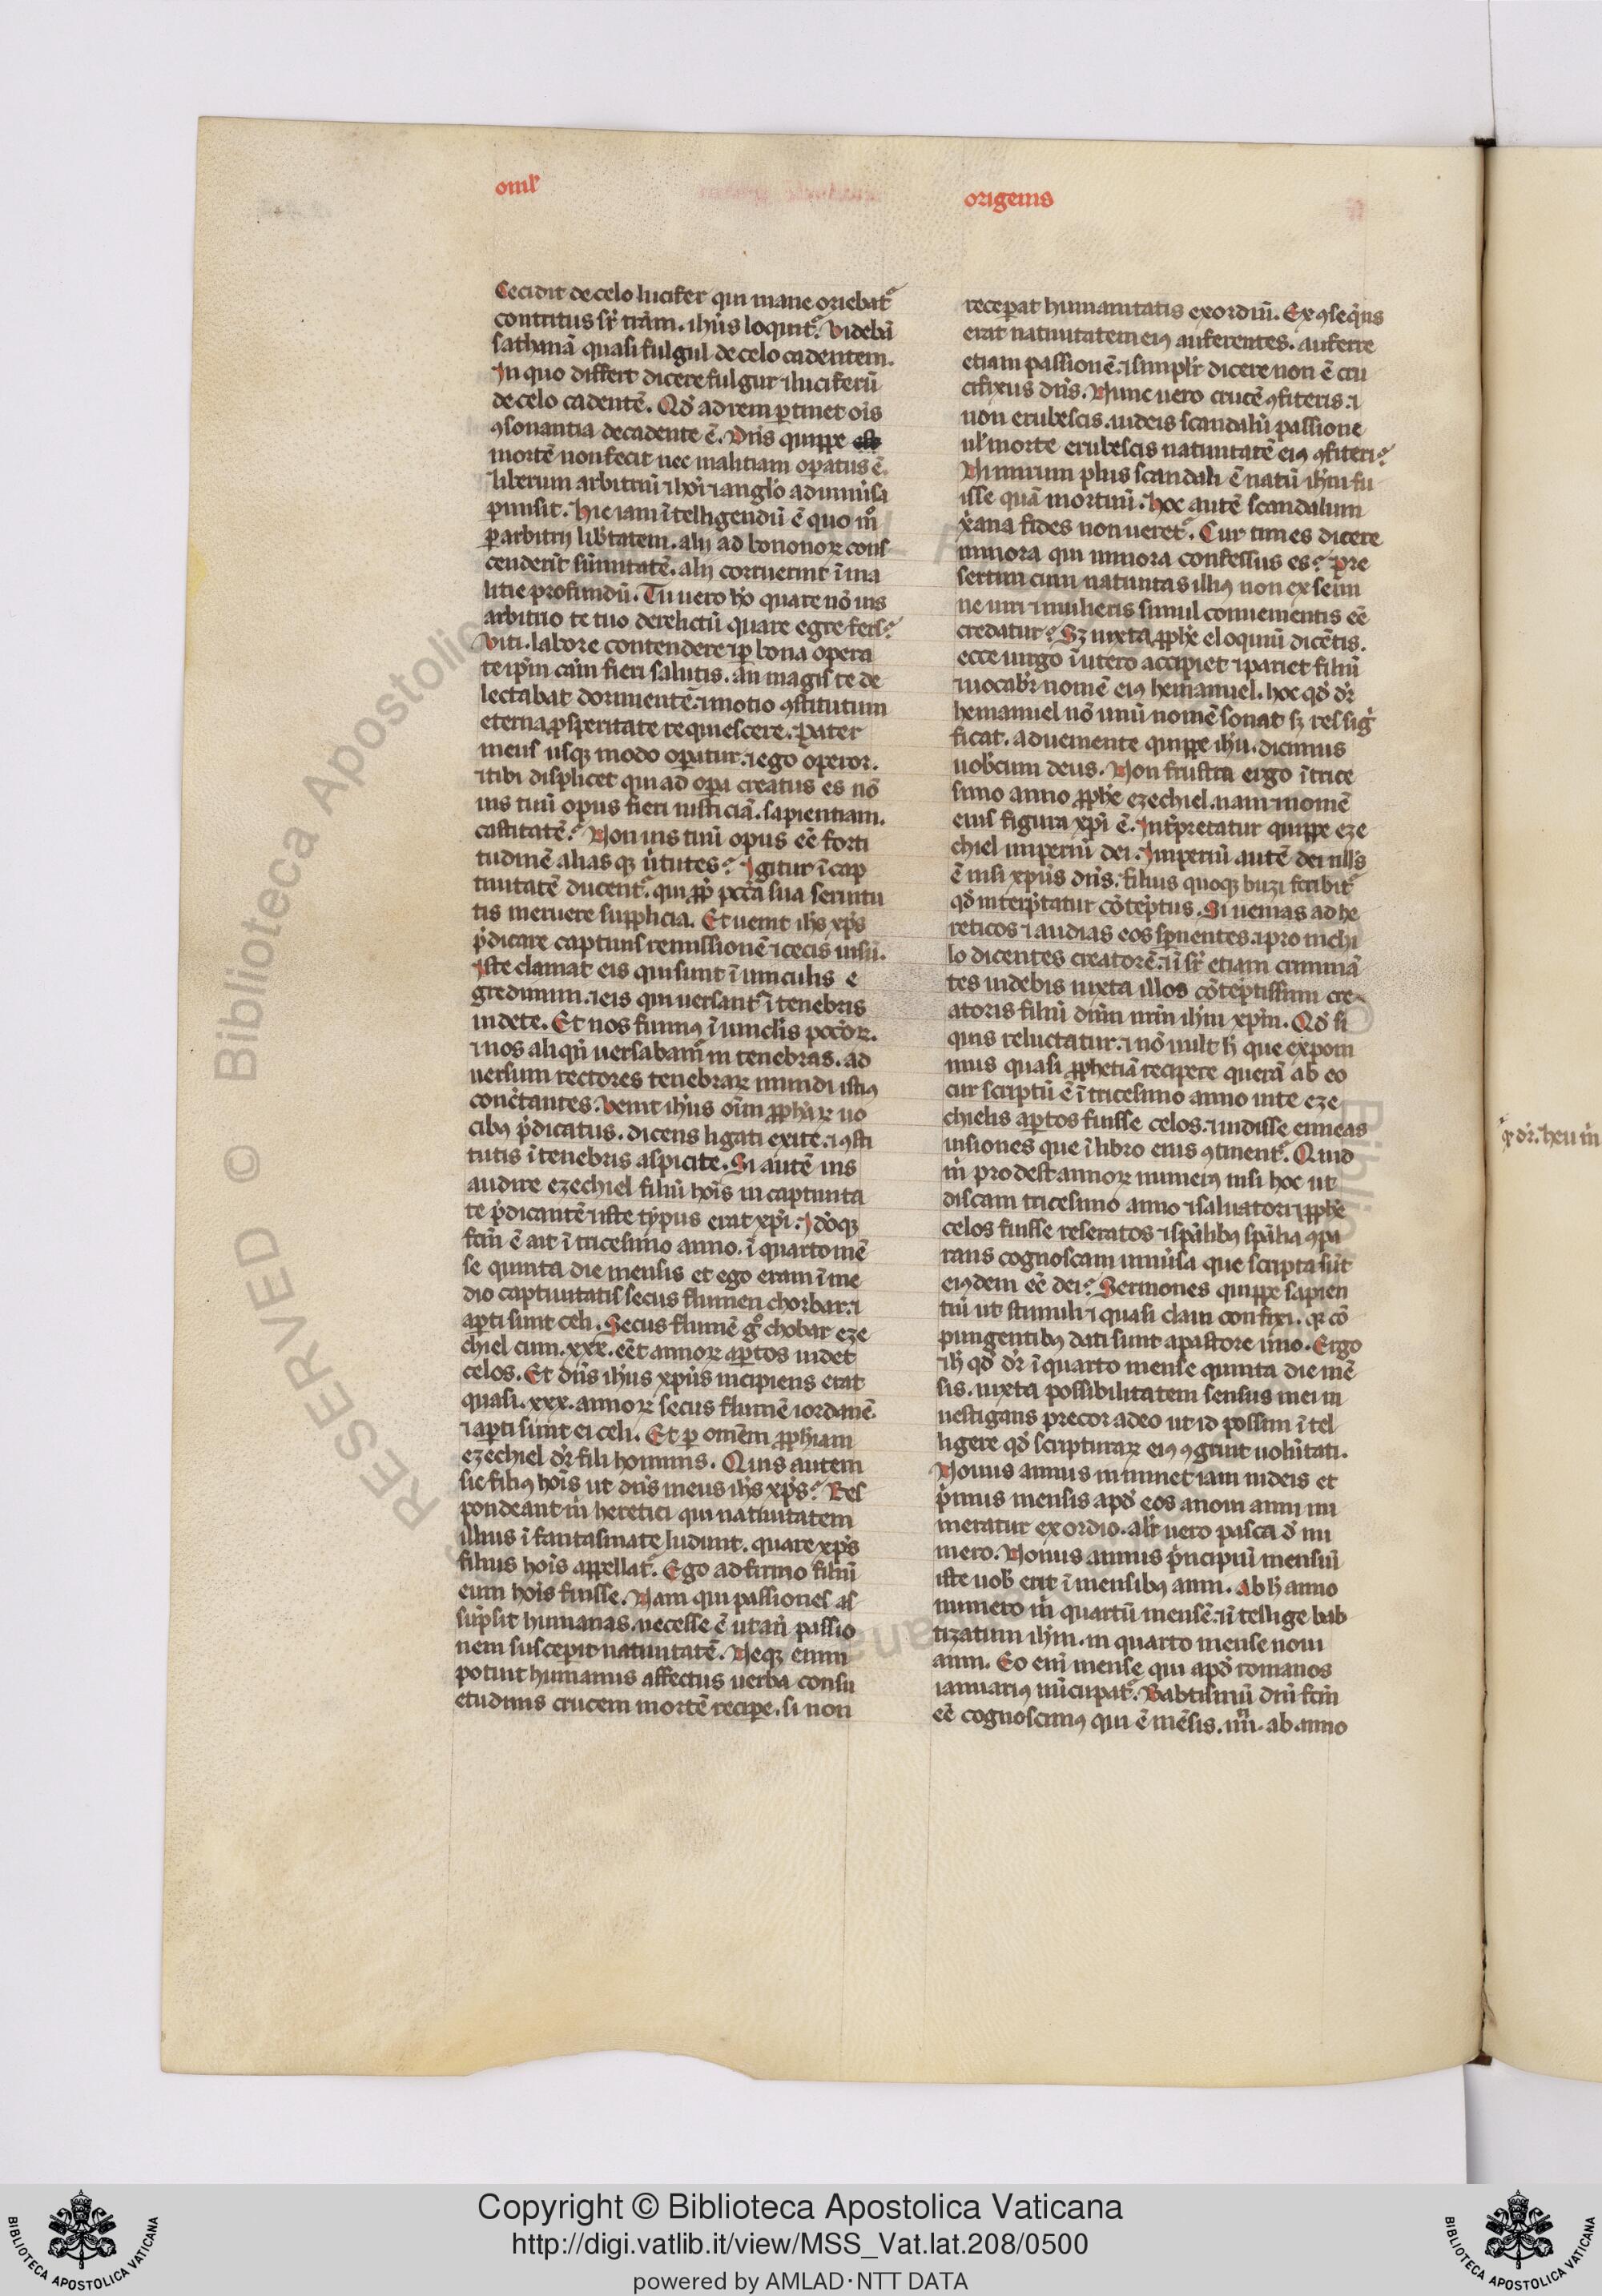 oml'
origenis
Cecidit de celo lucifer qui mane oriebat᷑
contritus sr̄ trām. ihūs loquit᷑. Videbā
sathanā quasi fulgul de celo cadentem.
In quo differt dicere fulgur ⁊ luciferū
de celo cadentē. Qd̓ ad rem ꝑtinet oīs
ꝯsonantia de cadente ē. Dn̄s quippe
mortē non fecit nec malitiam oꝑatus ē.
liberum arbitriū ⁊ hoī ⁊ anglo ad uniu̓sa
ꝑmisit. Hic iam ītelligendū ē quo mͦ
ꝑ arbitrij lib̓tatem. alij ad bonoꝝ cons
cenderīt sūmitatē. alij corruerint ī ma
litie profundū. Tu uero hō quare nō uis
arbitrio te tuo derelictū quare egre fers?
Viti. labore contendere ⁊ ꝑ bona opera
te ip̄m cām fieri salutis. an magis te de
lectabat dormientē. ⁊ in otio ꝯstitutum
eterna ꝓsperitate requiescere. Pater
meus usqꝫ modo oꝑatur. ⁊ ego operor.
⁊ tibi displicet qui ad oꝑa creatus es nō
uis tuū opus fieri iusticiā. sapientiam.
castitatē? Non uis tuū opus eē forti
tudinē alias qꝫ u̓tutes? Igitur ī cap
tiuitatē ducent᷑. qui ꝓp̄ pcc̄a sua seruitu
tis meruere supplicia. Et uenit ih̄s xp̄s
p̄dicare captiuis remissionē ⁊ cecis uisū.
Iste clamat eis qui sunt ī uinculis e
gredimini. ⁊ eis qui uersant᷑ ī tenebris
uidete. Et nos fuimꝰ ī uinclis pcc̄oꝝ.
⁊ nos aliqn̄ uersabam᷑ in tenebras. ad
uersum rectores tenebraꝝ mundi istiꝰ
conc̄tantes. Venit ih̄us oīm ꝓphaꝝ uo
cibꝰ p̄dicatus. dicens ligati exite. ⁊ ꝯsti
tutis ī tenebris aspicite. Si autē uis
audire ezechiel filiū hoīs in captiuita
te p̄dicantē ⁊ iste typus erat xp̄i. Idoqꝫ
fcm̄ ē ait ī tricesimo anno. ī quarto mē
se quinta die mensis et ego eram ī me
dio captiuitatis secus flumen chorbar. ⁊
aꝑti sunt celi. Secus flumē gͦ chobar eze
chiel cum .xxx. eēt annoꝝ aꝑtos uidet
celos. Et dn̄s ih̄us xp̄us incipiens erat
quasi .xxx. annoꝝ secus flumē iordanē.
⁊ aꝑti sunt ei celi. Et ꝑ omēm ꝓphiam
ezechiel dr̄ fili hominis. Quis autem
sic filiꝰ hoīs ut dn̄s meus ih̄s xp̄s? Res
pondeant m̄ heretici qui natiuitatem
illius ī fantasmate ludunt. quare xp̄s
filius hoīs appellat᷑. Ego adfirmo filiū
eum hoīs fuisse. Nam qui passiones as
sūpsit humanas. necesse ē ut an̄ passio
nem susceꝑit natiuitatē. Neqꝫ enim
potuit humanus affectus uerba consu
etudinis crucem mortē recipe. si non
receꝑat humanitatis exordiū. Ex ꝯseq̄ns
erat natiuitatem eiꝰ auferentes. auferre
etiam passionē. ⁊ simplr̄ dicere non ē cru
cifixus dn̄s. Nunc uero crucē ꝯfiteris. ⁊
non erubescis. iudeis scandalū passione
ul̓ morte erubescis natiuitatē eiꝰ ꝯfiteri?
Nimirum plus scandali ē natū ih̄m fu
isse quā mortuū. Hoc autē scandalum
x̄ana fides non ueret᷑. Cur times dicere
minora qui minora confessus es? Pre
sertim cum natiuitas illiꝰ non ex semi
ne uiri ⁊ mulieris simul conuenientis eē
credatur? Sꝫ iuxta ꝓphe eloquiū dicētis.
ecce uirgo ī utero accipiet ⁊ pariet filiū
⁊ uocabr̄ nomē eiꝰ hemanuel. hoc qd̓ dr̄
hemanuel nō unū nomē sonat sꝫ res sig̓
ficat. adueniente quippe ih̄u. dicimus
nob̓cum deus. Non frustra ergo ī trice
simo anno ꝓphe ezechiel. nam ⁊ nomē
eius figura xp̄i ē. Int̓pretatur quippe eze
chiel imperiū dei. Imperiū autē dei nllꝰs
ē nisi xp̄us dn̄s. filius quoqꝫ buzi scribit᷑
qd̓ interp̄tatur cōtēptus. Si uenias ad he
reticos ⁊ audias eos sp̄nentes. ⁊ pro nichi
lo dicentes creatorē. ⁊ ī sr̄ etiam criminā
tes uidebis iuxta illos cōtēptissimum cre
atoris filiū dn̄m nr̄m ih̄m xp̄m. Qd̓ si
quis reluctatur. ⁊ nō uult h̄ que exponi
mus quasi ꝓphetiā recipere querā ab eo
cur scriptū ē ī tricesimo anno uite eze
chielis aꝑtos fuisse celos. ⁊ uidisse eum eas
uisiones que ī libro eius ꝯtinent᷑. Quid
m̄ prodest annoꝝ numerꝰ nisi hoc ut
discam tricesimo anno ⁊ saluatori ⁊ ꝓphe
celos fuisse reseratos ⁊ sp̄ālibꝰ sp̄ālia ꝯpa
rans cognoscam uniu̓sa que scripta sūt
eiꝰdem eē dei? Sermones quippe sapien
tiū ut stimuli ⁊ quasi claui confixi. qꝛ cō
pungentibꝰ dati sunt a pastore uno. Ergo
⁊ h̄ qd̓ dr̄ ī quarto mense quinta die mē
sis. iuxta possibilitatem sensus mei in
uestigans precor adeo ut id possim ī tel
ligere qd̓ scripturaꝝ eiꝰ ꝯgruit uolūtati.
Nouus annus imminet iam iudeis et
p̄mus mensis apd̓ eos a noui anni nu
meratur exordio. alr̄ uero pasca d̓ nu
mero. Nouus annus p̄ncipiū mensiū
iste uob̓ erit ī mensibꝰ anni. Ab h̄ anno
numero m̄ quartū mensē. ⁊ ī tellige bab
tizatum ih̄m. in quarto mense noui
anni. Eo eni mense qui apd̓ romanos
ianuariꝰ nūcupat᷑. Babtismū dn̄i fcm̄
eē cognoscimꝰ qui ē mēsis .iiii. ab anno